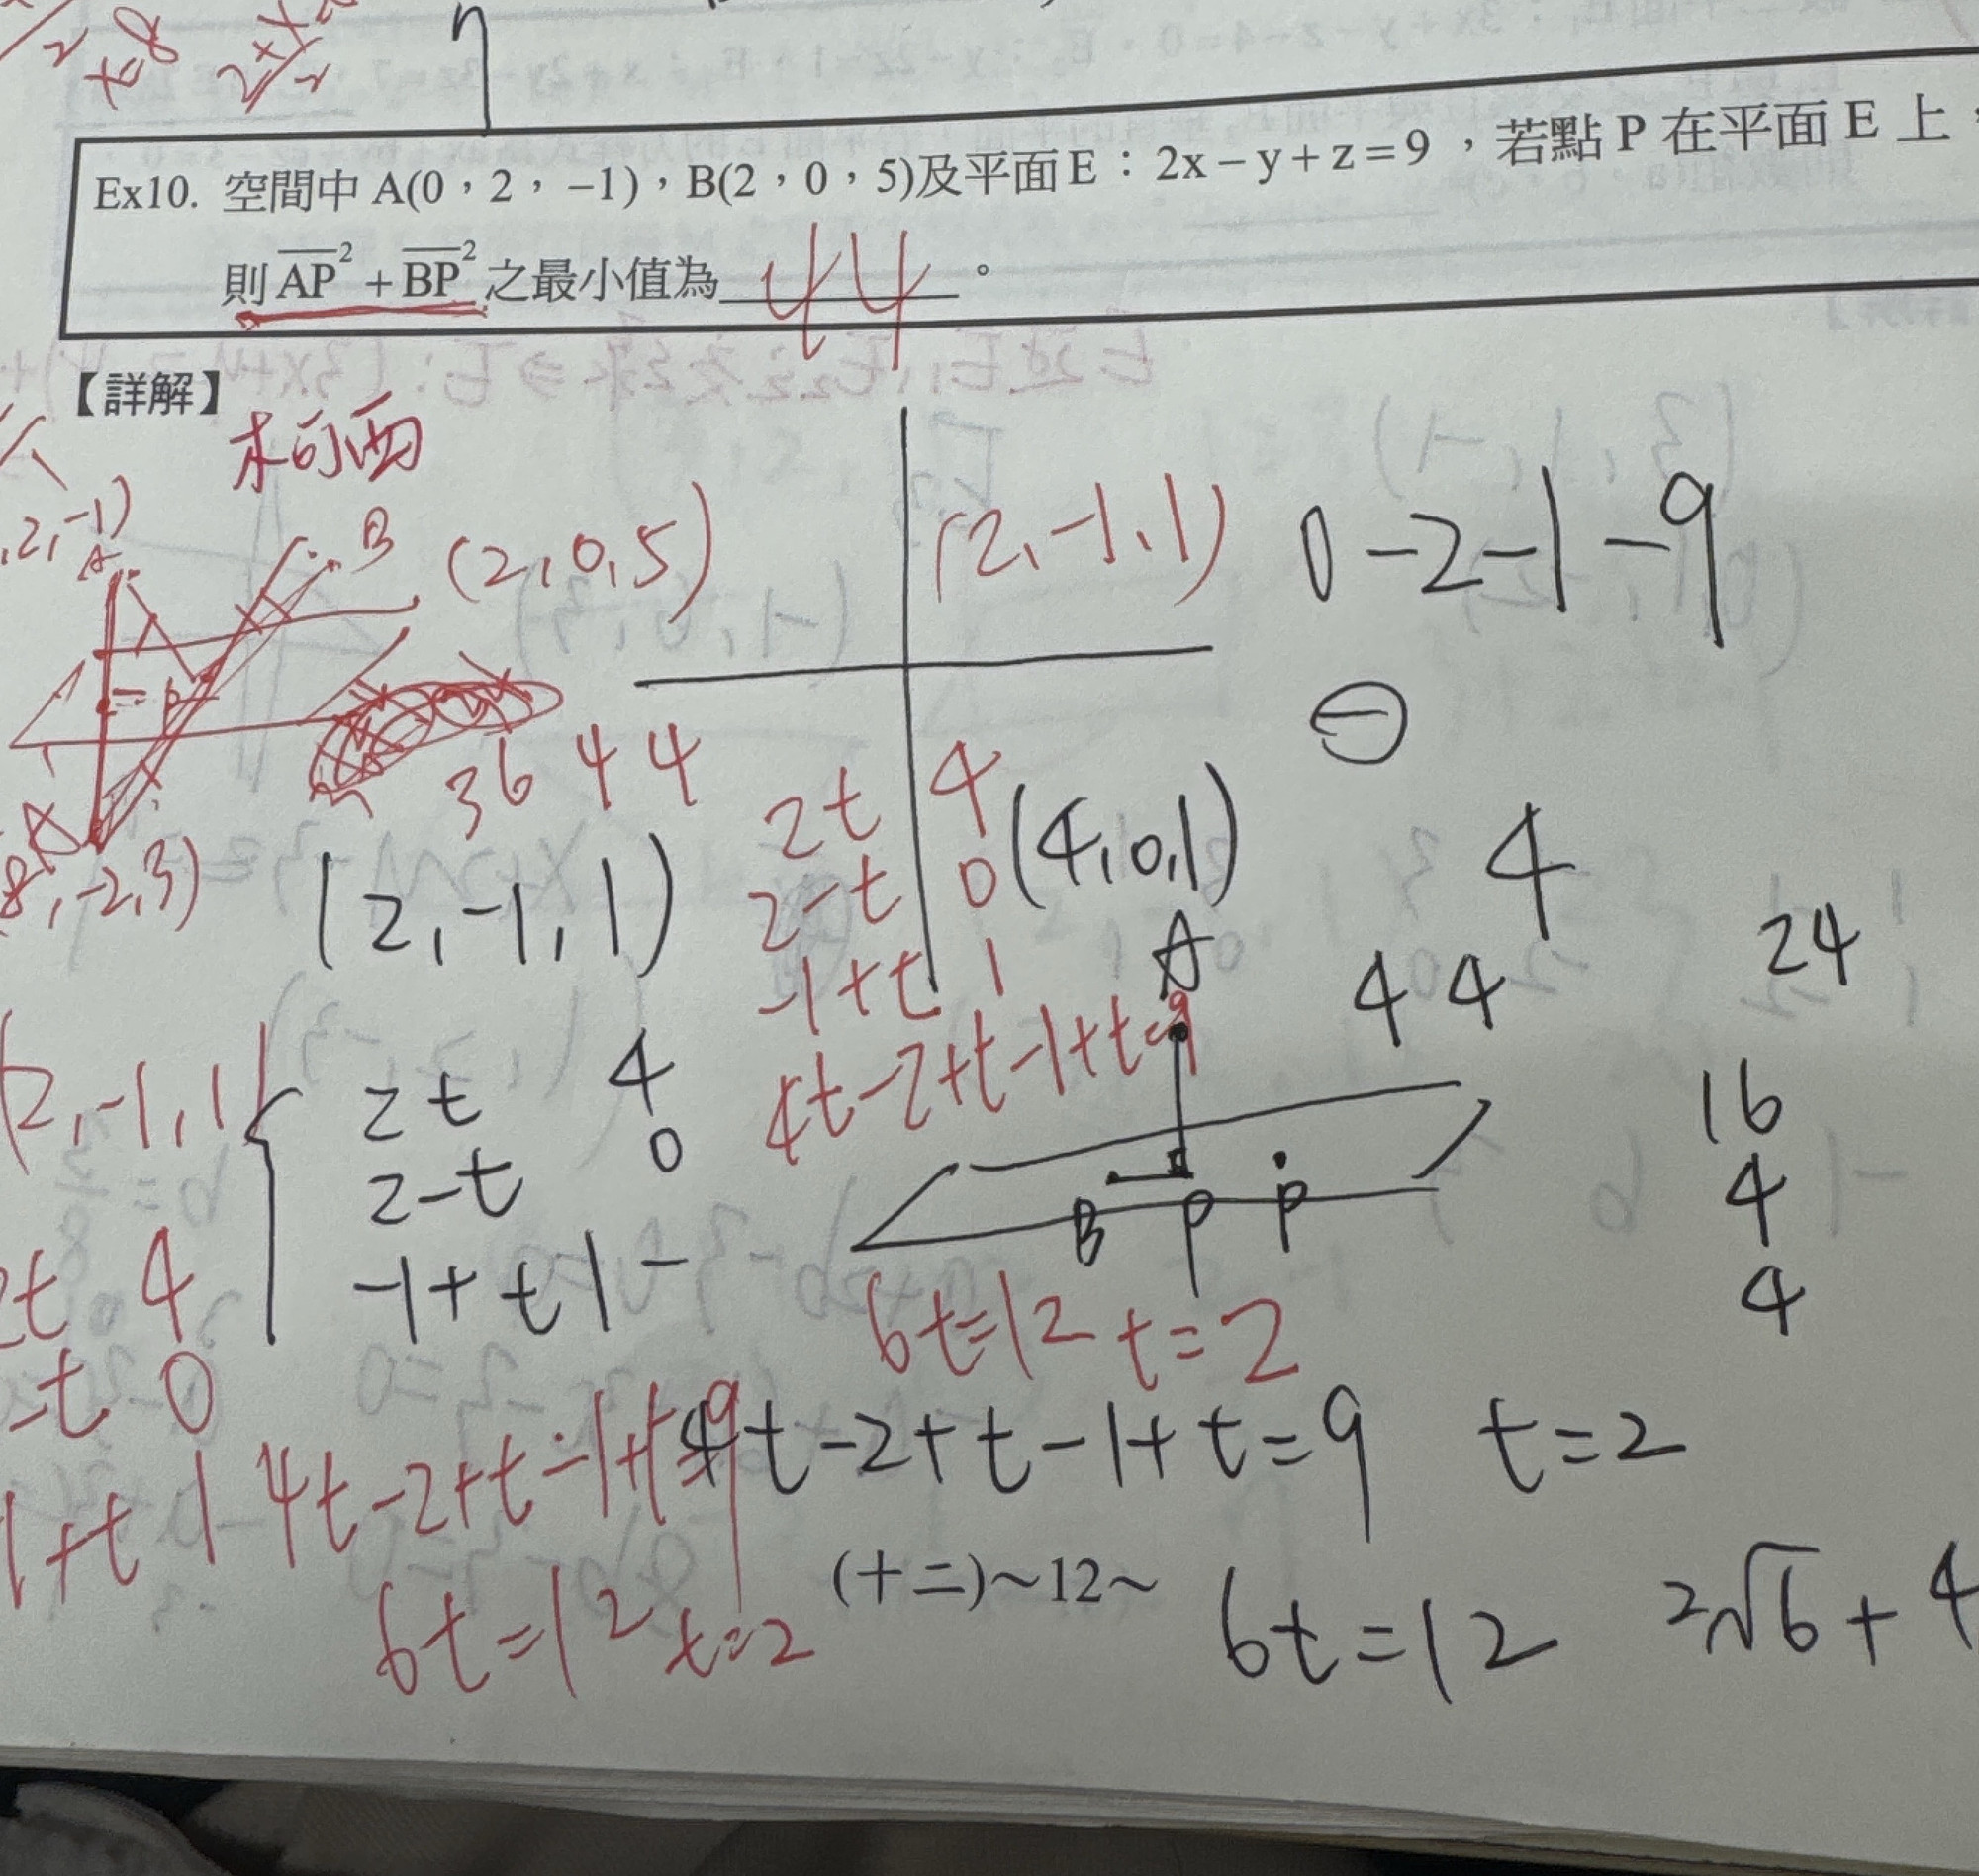 t=8
2+x
2
Ex10. 空間中 A(0，2，-1)，B(2，0，5)及平面E：2x-y+z=9，若點 P 在平面 E 上，
則 AP² + BP² 之最小值為 44 。
【詳解】
柯西
,2,-1)
A
B (2,0,5)
(2,-1,1) 0-2-1-9
⊖
36 4 4
2t 4
2-t 0
-1+t 1
(4,0,1)
8,-2,3)
(2,-1,1)
4
4 4
24
4t-2+t-1+t=9
A
B P P
16
4
4
(2,-1,1)
2t 4
2-t 0
-1+t 1
2t 4
-t 0
1+t 1
6t=12 t=2
4t-2+t-1+t=9
4t-2+t-1+t=9 t=2
6t=12 t=2
(十二)～12～
6t=12 2√6+4